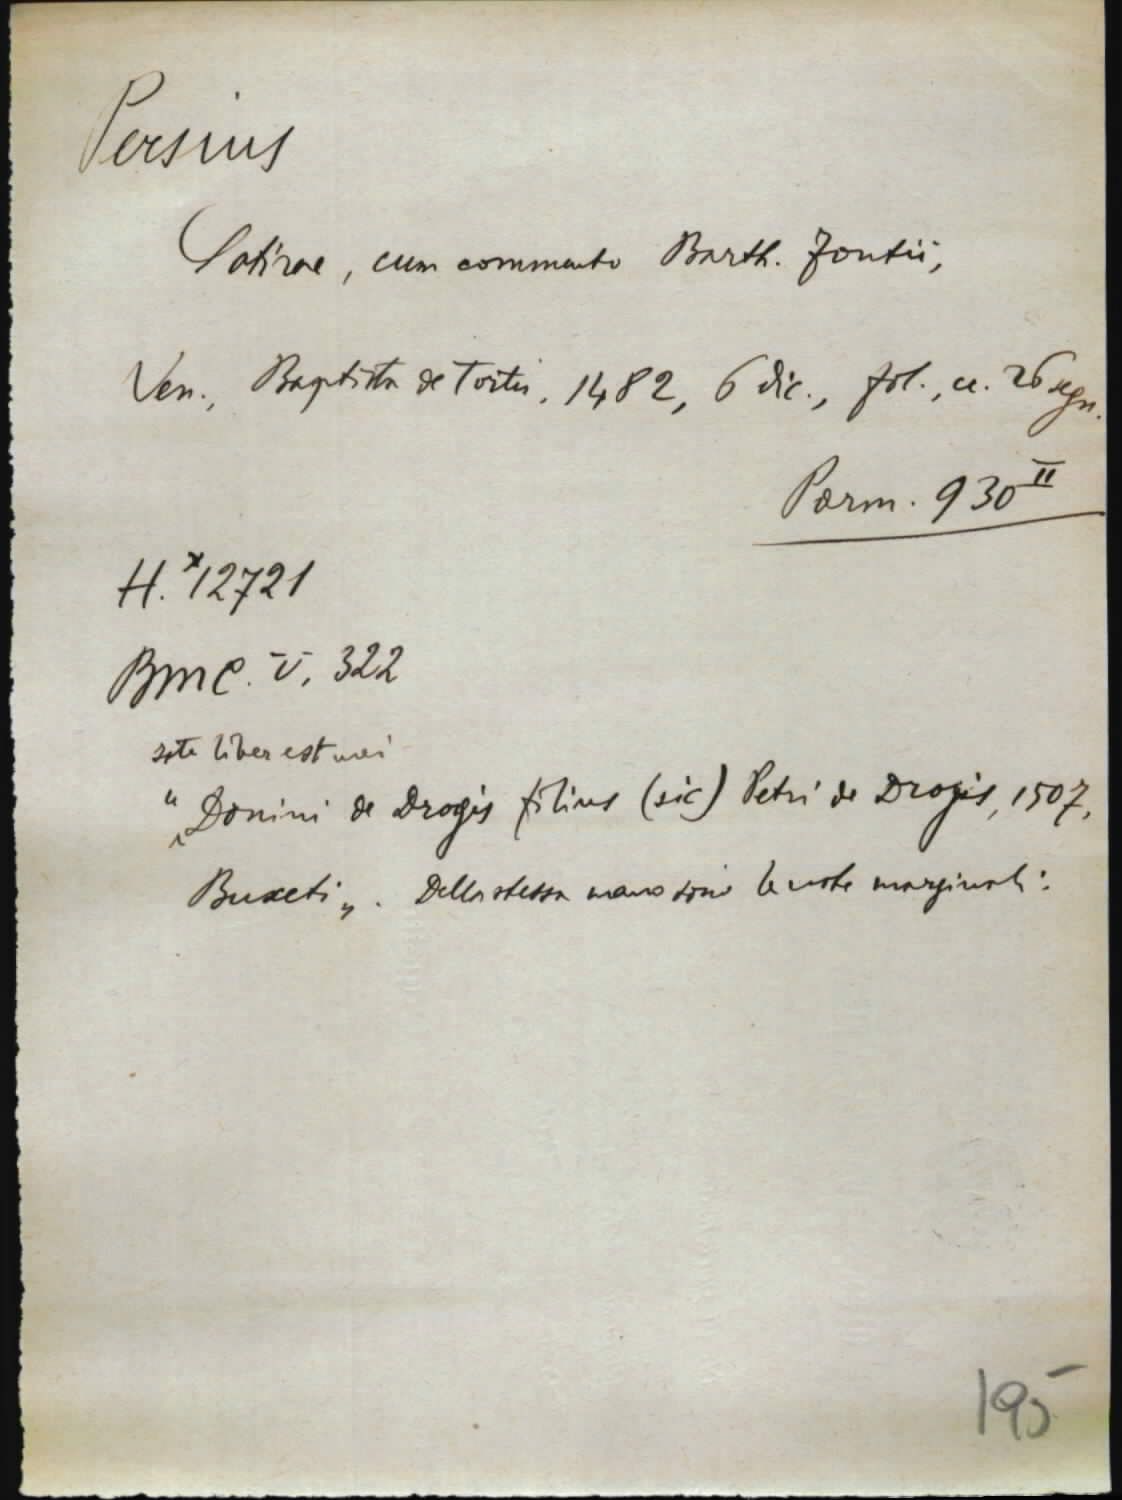 Persius
Satirae, cum commento Barth. Fontii,
Ven., Baptista de Tortis, 1482, 6 dic., fol., cc. 26 segn.
Parm. 930 II
H. *12721
BMC. V, 322
iste liber est mei
"Donini de Drogis filius (sic) Petri de Drogis, 1507,
Buxeti". Della stessa mano sono le note marginali.
195